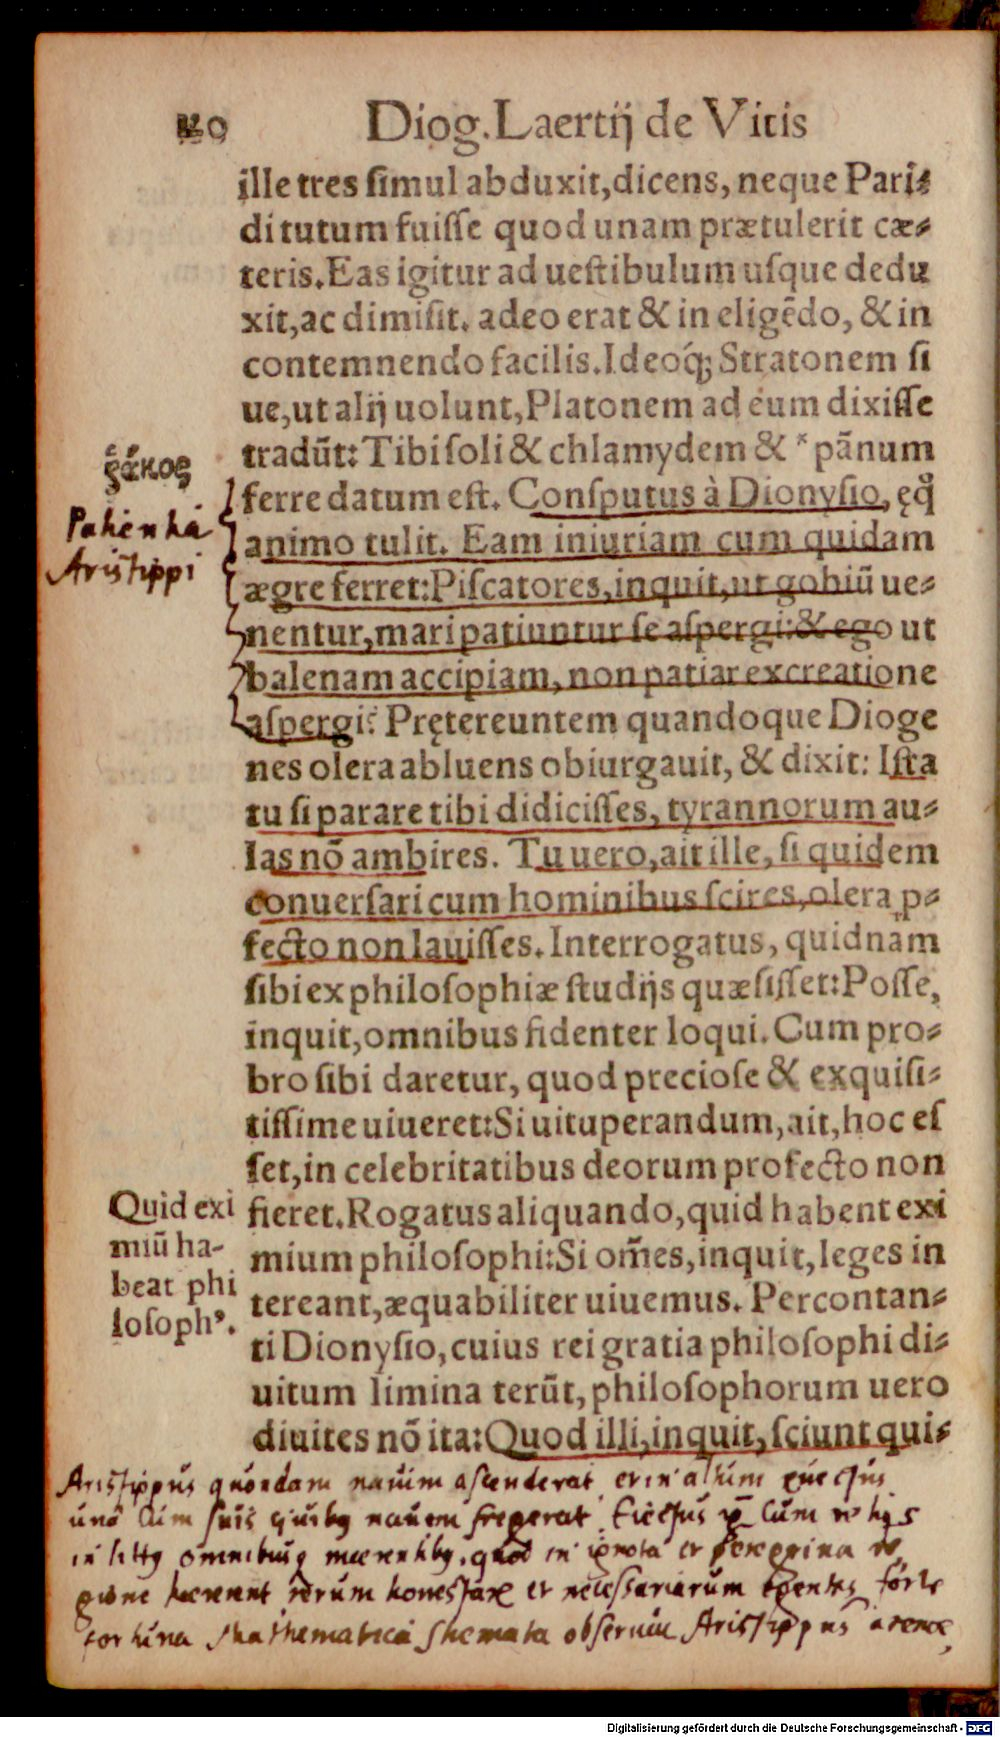 Diog. Laertij de Vitis
ille tres ſimul abduxit, dicens, neque Pari⸗
di tutum fuiſſe quod unam prætulerit cæ⸗
teris. Eas igitur ad ueſtibulum uſque dedu
xit, ac dimiſit. adeo erat & in eligēdo, & in
contemnendo facilis. Ideoq́; Stratonem ſi
ue, ut alij uolunt, Platonem ad eum dixiſſe
tradūt: Tibi ſoli & chlamydem & * pānum
ῥάκος
ferre datum eſt. Conſputus à Dionyſio, ęq̃
Patientia
animo tulit. Eam iniuriam cum quidam
Aristippi
ægre ferret: Piſcatores, inquit, ut gobiū ue⸗
nentur, mari patiuntur ſe aſpergi: & ego ut
balenam accipiam, non patiar excreatione
aſpergi? Prętereuntem quandoque Dioge
nes olera abluens obiurgauit, & dixit: Iſta
tu ſi parare tibi didiciſſes, tyrannorum au⸗
las nō ambires. Tu uero, ait ille, ſi quidem
conuerſari cum hominibus ſcires, olera ꝓ⸗
fecto non lauiſſes. Interrogatus, quidnam
ſibi ex philoſophiæ ſtudijs quæſiſſet: Poſſe,
inquit, omnibus fidenter loqui. Cum pro⸗
bro ſibi daretur, quod precioſe & exquiſi⸗
tiſſime uiueret: Si uituperandum, ait, hoc eſ
ſet, in celebritatibus deorum profecto non
Quid exi
miū ha-
beat phi
loſophꝰ.
fieret. Rogatus aliquando, quid habent exi
mium philoſophi: Si om̄es, inquit, leges in
tereant, æquabiliter uiuemus. Percontan⸗
ti Dionyſio, cuius rei gratia philoſophi di⸗
uitum limina terūt, philoſophorum uero
diuites nō ita: Quod illi, inquit, ſciunt qui⸗
Aristippus quondam nauim ascenderat, et in altum euectus
una cum suis ciuibꝫ nauem fregerat. Eiectus cum
in omnibus mœrentibꝫ, quod in ignota et peregrina re,
gione hærerent rerum honestarū et necessariarum egentes forte
fortuna Mathematica schemata Aristippus arenæ,
Digitalisierung gefördert durch die Deutsche Forschungsgemeinschaft - DFG